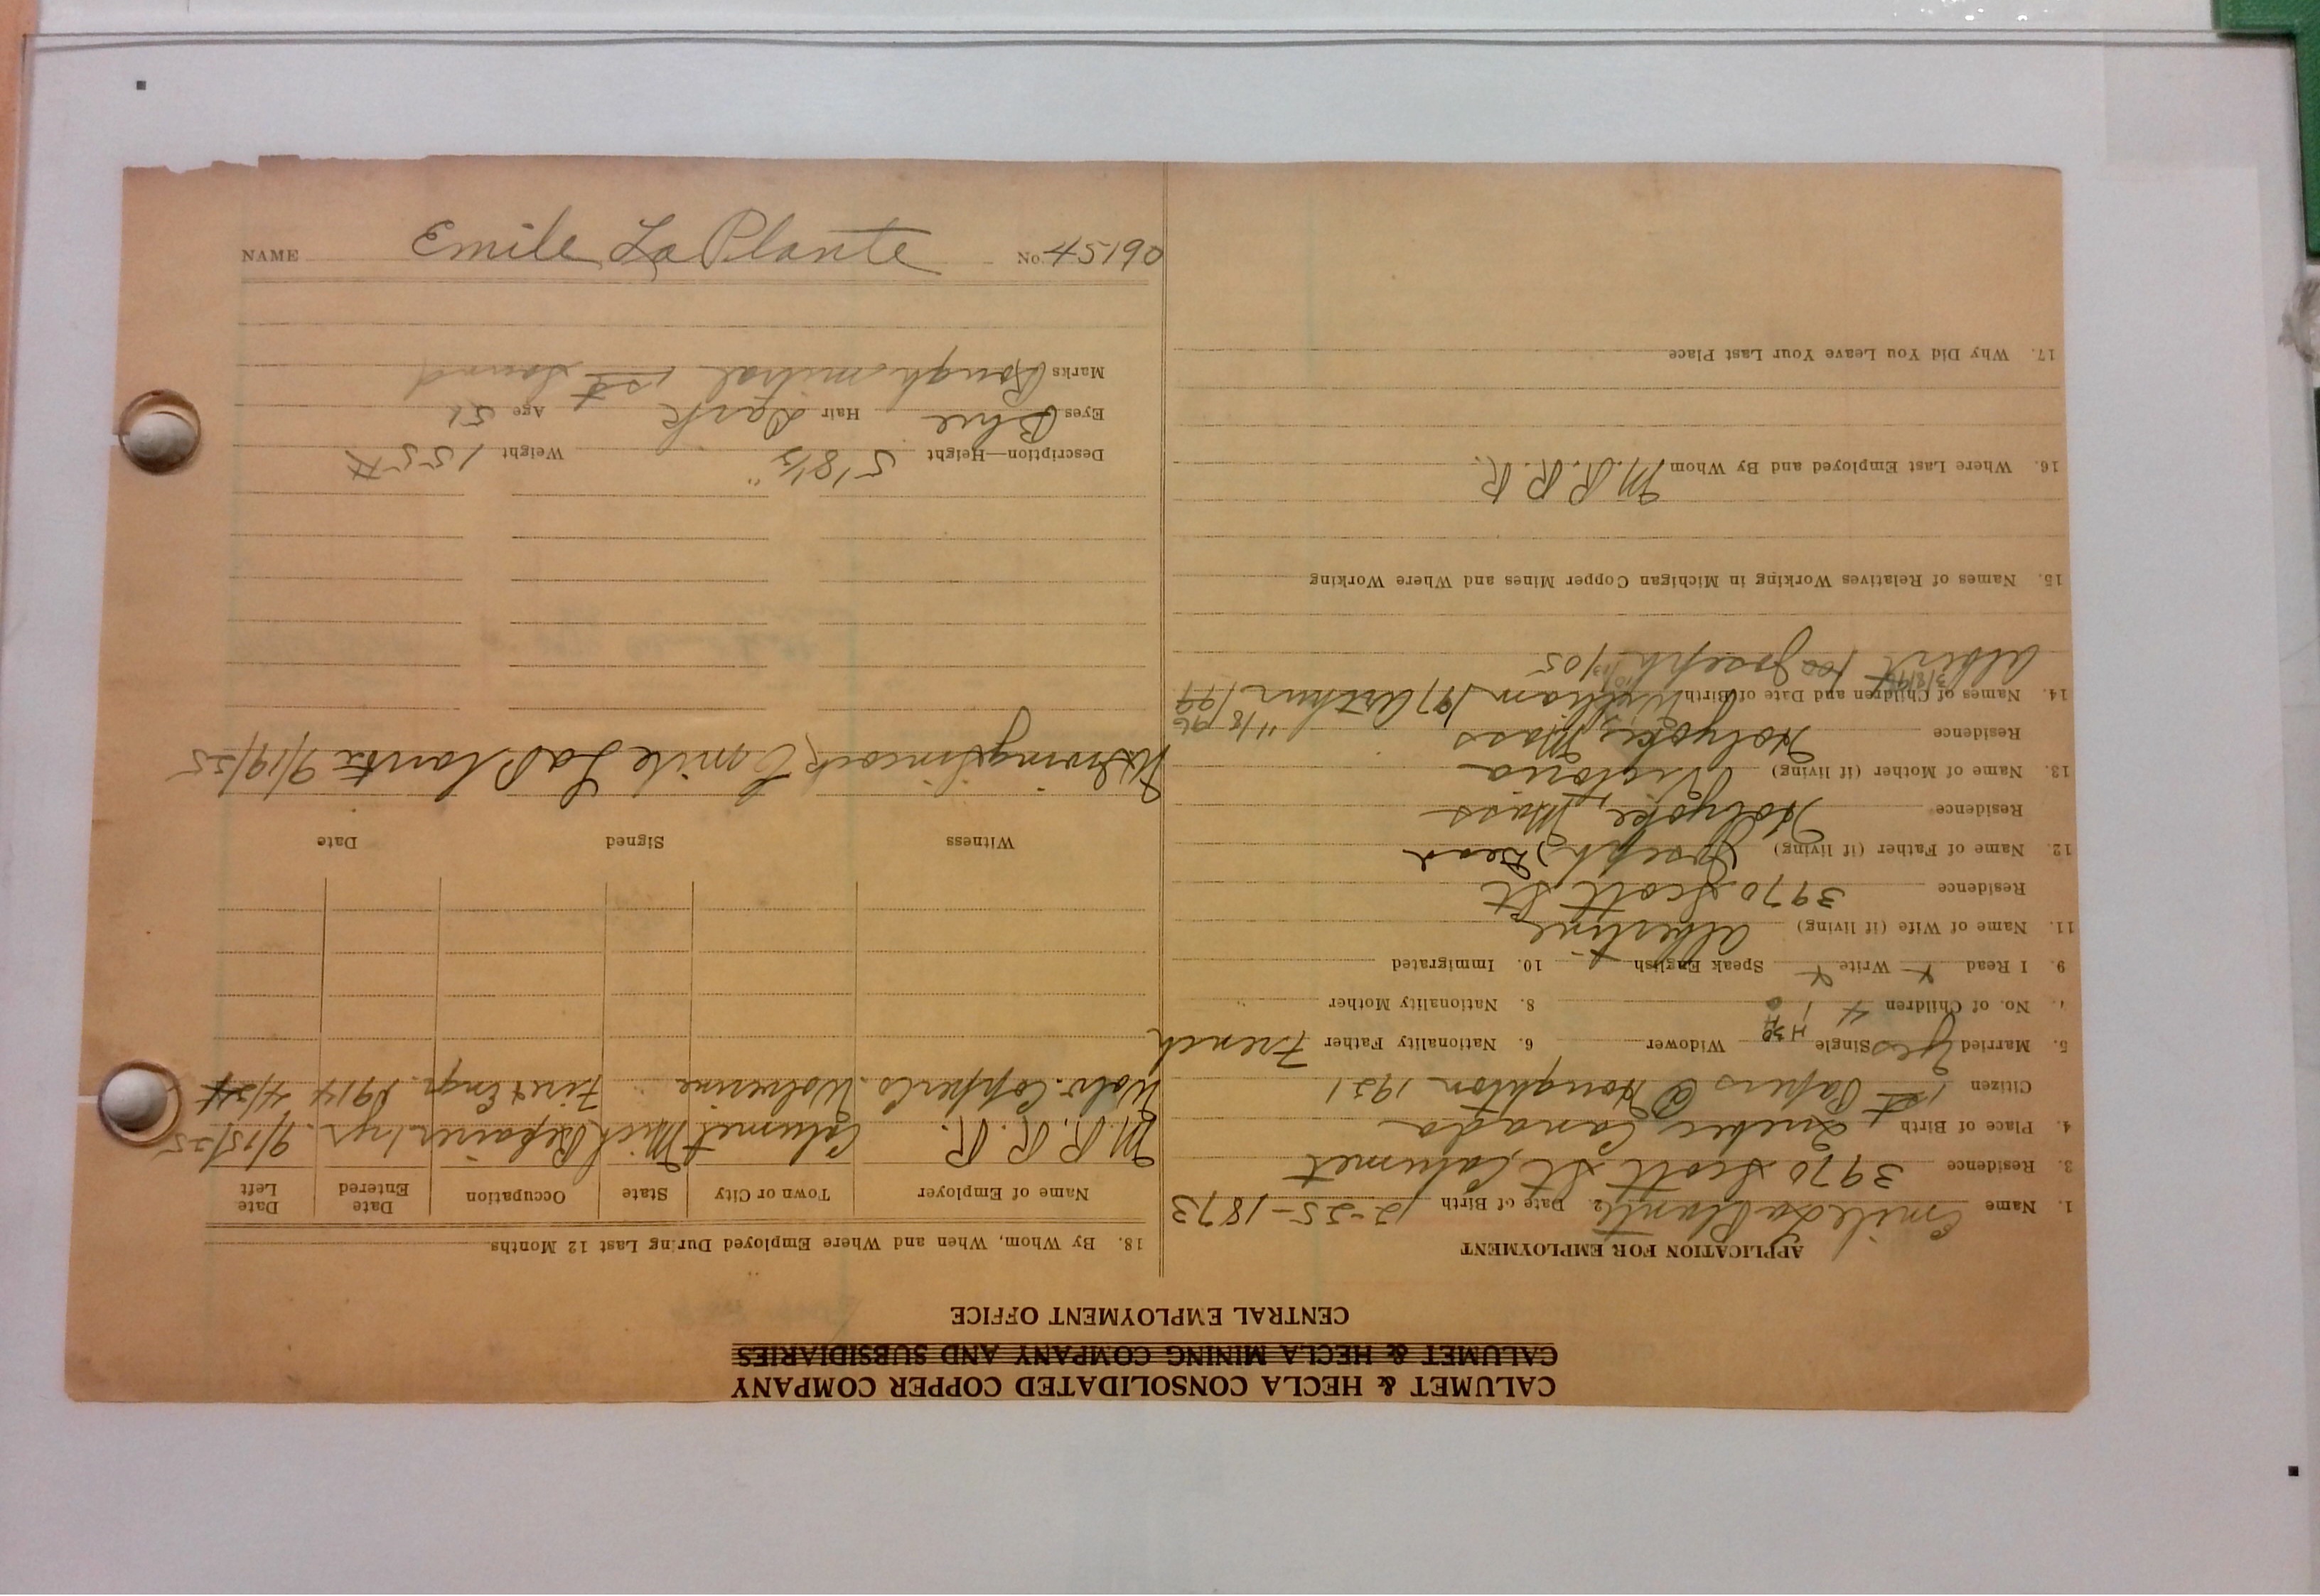 CALUMET & HECLA CONSOLIDATED COPPER COMPANY
CALUMET & HECLA MINING COMPANY AND SUBSIDIARIES
CENTRAL EMPLOYMENT OFFICE
APPLICATION FOR EMPLOYMENT
1. Name Emile La Plante 2. Date of Birth 12-25-1873
3. Residence 3970 Scott St, Calumet
4. Place of Birth Quebec Canada
Citizen 1st Papers @ Houghton 1921
5. Married Yes Single Widower 6. Nationality Father French
7. No. of Children 4 8. Nationality Mother "
9. I Read Write Speak English 10. Immigrated
11. Name of Wife (if living) Albertine
Residence 3970 Scott St
12. Name of Father (if living) Joseph, Dead
Residence Holyoke, Mass
13. Name of Mother (if living) Victoria
Residence Holyoke, Mass
14. Names of Children and Date of Birth William 197 Arthur 199
Albert 100 Joseph 105
15. Names of Relatives Working in Michigan Copper Mines and Where Working
16. Where Last Employed and By Whom M.R.R.R.
17. Why Did You Leave Your Last Place
18. By Whom, When and Where Employed During Last 12 Months
Name of Employer Town or City State Occupation Date Entered Date Left
M.R.R.R. Calumet Mich Repairer 1 yr. 9/15/25
Wolv. Copper Co Wolverine Fire & Engr. 1914 4/24
Witness Signed Date
Emile La Plante 9/19/25
Description—Height 5'8½" Weight 155#
Eyes Blue Hair Dark Age 51
Marks Rough mitral 1st sound
NAME Emile La Plante No. 45190